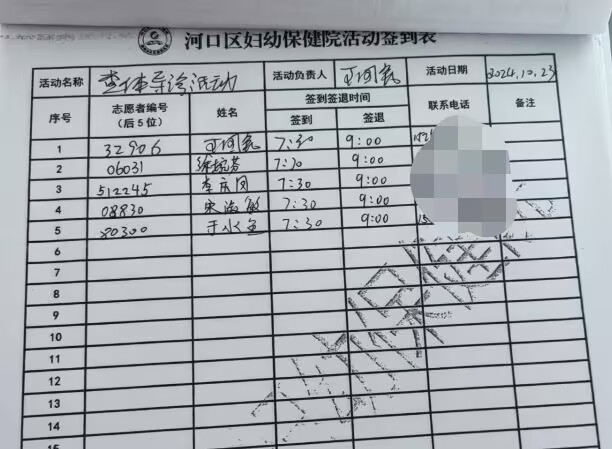 河口区妇幼保健院活动签到表
活动名称 查体导诊活动 活动负责人 活动日期 2024.10.23
序号 志愿者编号（后5位） 姓名 签到签退时间 联系电话 备注
签到 签退
1 32906 7:30 9:00
2 06031 7:30 9:00
3 512245 李庆凤 7:30 9:00
4 08830 宋海敏 7:30 9:00
5 80300 于水鱼 7:30 9:00
6
7
8
9
10
11
12
13
14